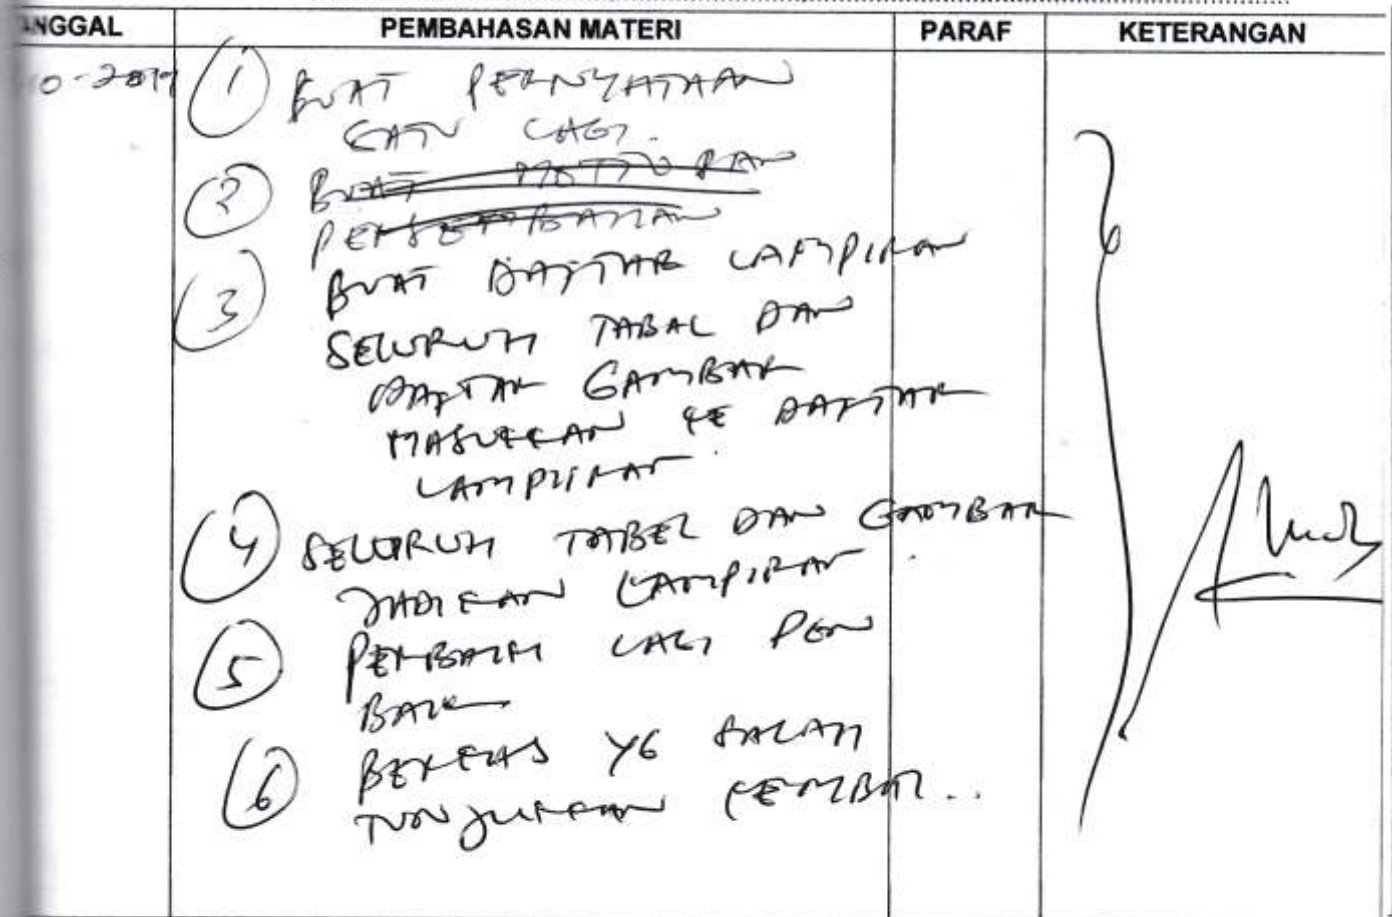 NGGAL PEMBAHASAN MATERI PARAF KETERANGAN
10-2019 1 BUAT PERNYATAAN
SATU LAGI.
2 BUAT MOTTO DAN
PERSEMBAHAN
3 BUAT DAFTAR LAMPIRAN
SELURUH TABAL DAN
DAFTAR GAMBAR
MASUKKAN KE DAFTAR
LAMPIRAN.
4 SELURUH TABEL DAN GAMBAR
JADIKAN LAMPIRAN.
5 PERBAIKI LAGI
6 BERKAS YG SALAH
TUNJUKKAN KEMBALI..